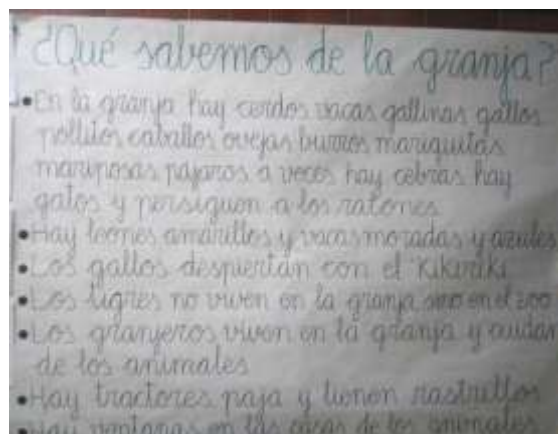 ¿Qué sabemos de la granja?
• En la granja hay cerdos vacas gallinas gallos
pollitos caballos ovejas burros mariquitas
mariposas pajaros a veces hay cebras hay
gatos y persiguen a los ratones
• Hay leones amarillos y vacas moradas y azules
• Los gallos despiertan con el Kikiriki
• Los tigres no viven en la granja sino en el zoo
• Los granjeros viven en la granja y cuidan
de los animales
• Hay tractores paja y tienen rastrillos
• Hay ventanas en las casas de los animales